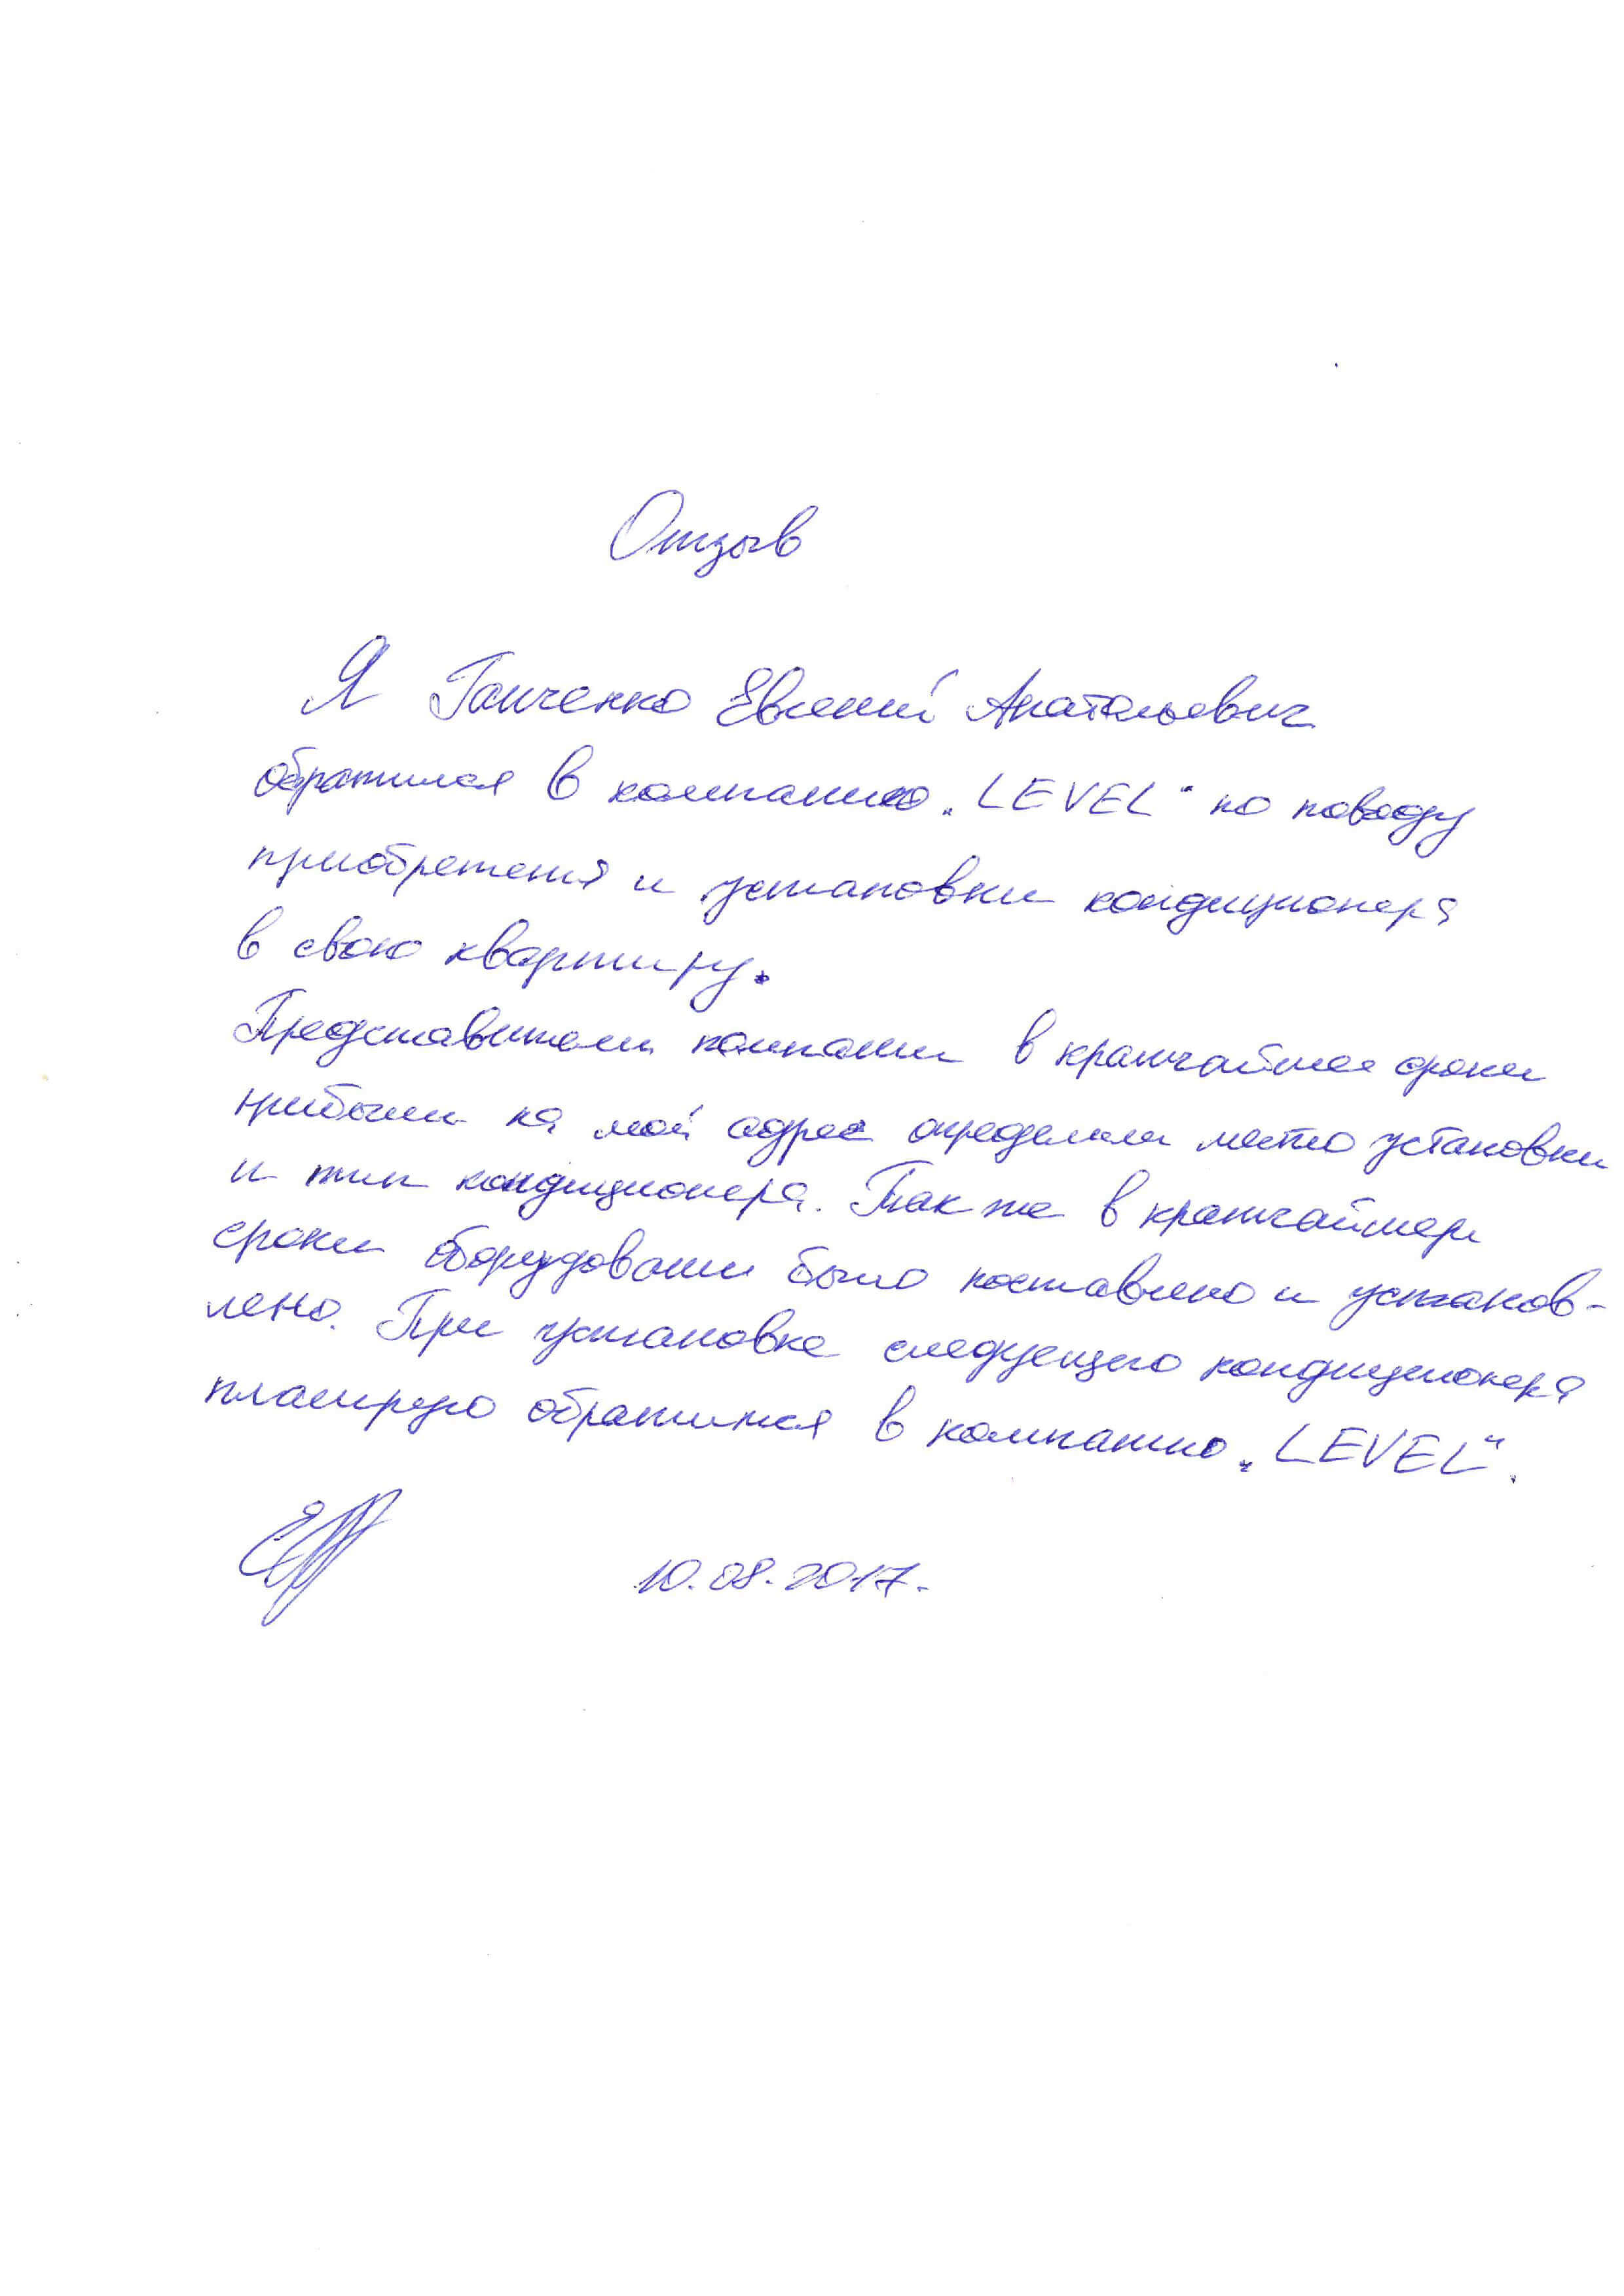 Отзыв
Я Ганченко Евгений Анатольевич
обратился в компанию „LEVEL" по поводу
приобретения и установки кондиционера
в свою квартиру.
Представители компании в кратчайшее сроки
прибыли на мой адрес определили место установки
и тип кондиционера. Так же в кратчайшери
сроки оборудование было поставлено и установ-
лено. При установке следующего кондиционера
планирую обратится в компанию „LEVEL".
10.08.2017.